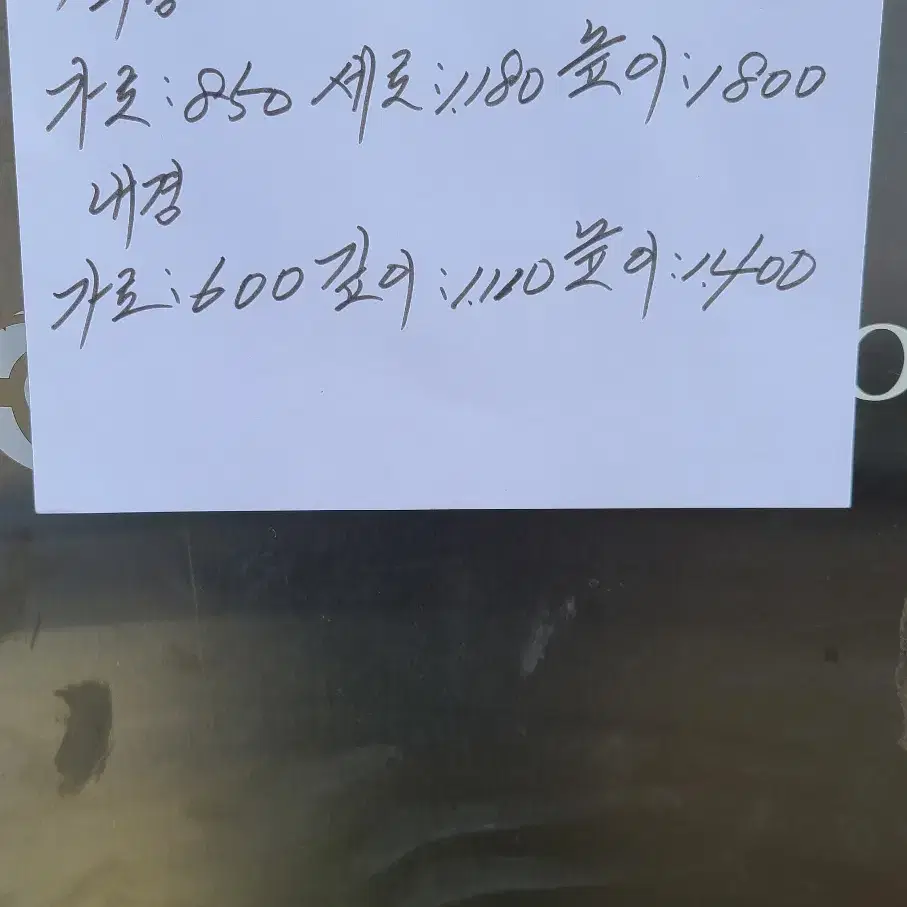 가로:850 세로:1.180 높이:1800
내경
가로:600 깊이:1.110 높이:1.400